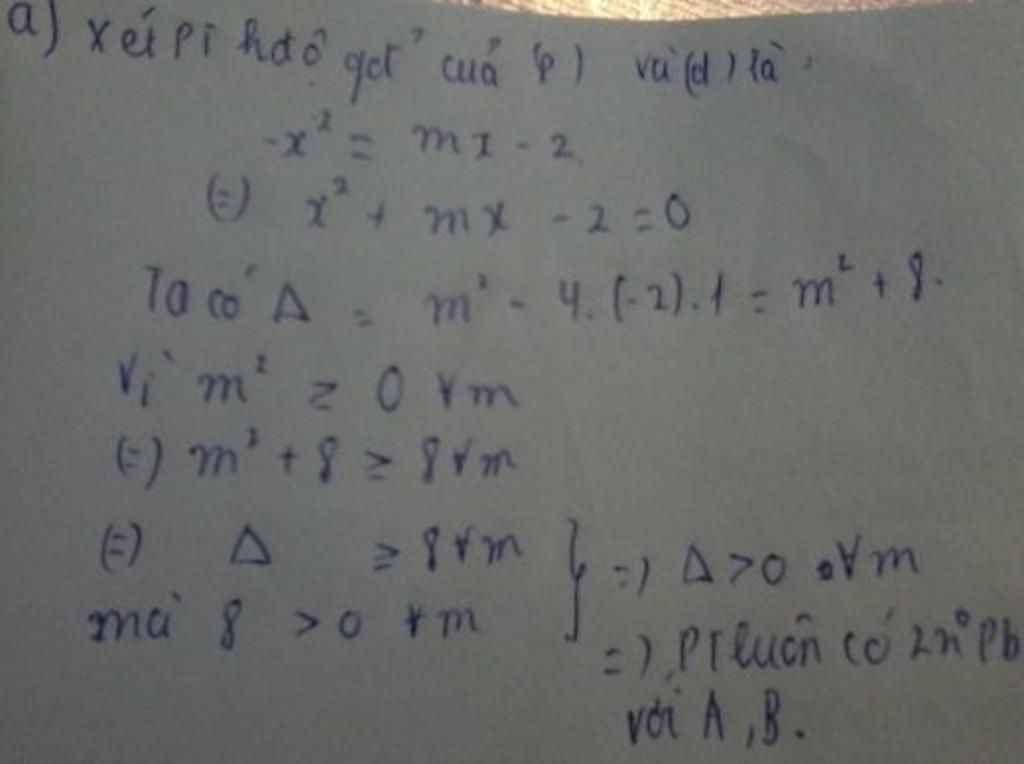 a) Xét PT hđộ gđ của (P) và (d) là :
-x² = mx - 2
(=) x² + mx - 2 = 0
Ta có Δ = m² - 4.(-2).1 = m² + 8.
Vì m² ≥ 0 ∀m
(=) m² + 8 ≥ 8 ∀m
(=) Δ ≥ 8 ∀m
mà 8 > 0 ∀m
=) Δ > 0 ∀m
=) PT luôn có 2 n⁰ pb
với A, B.